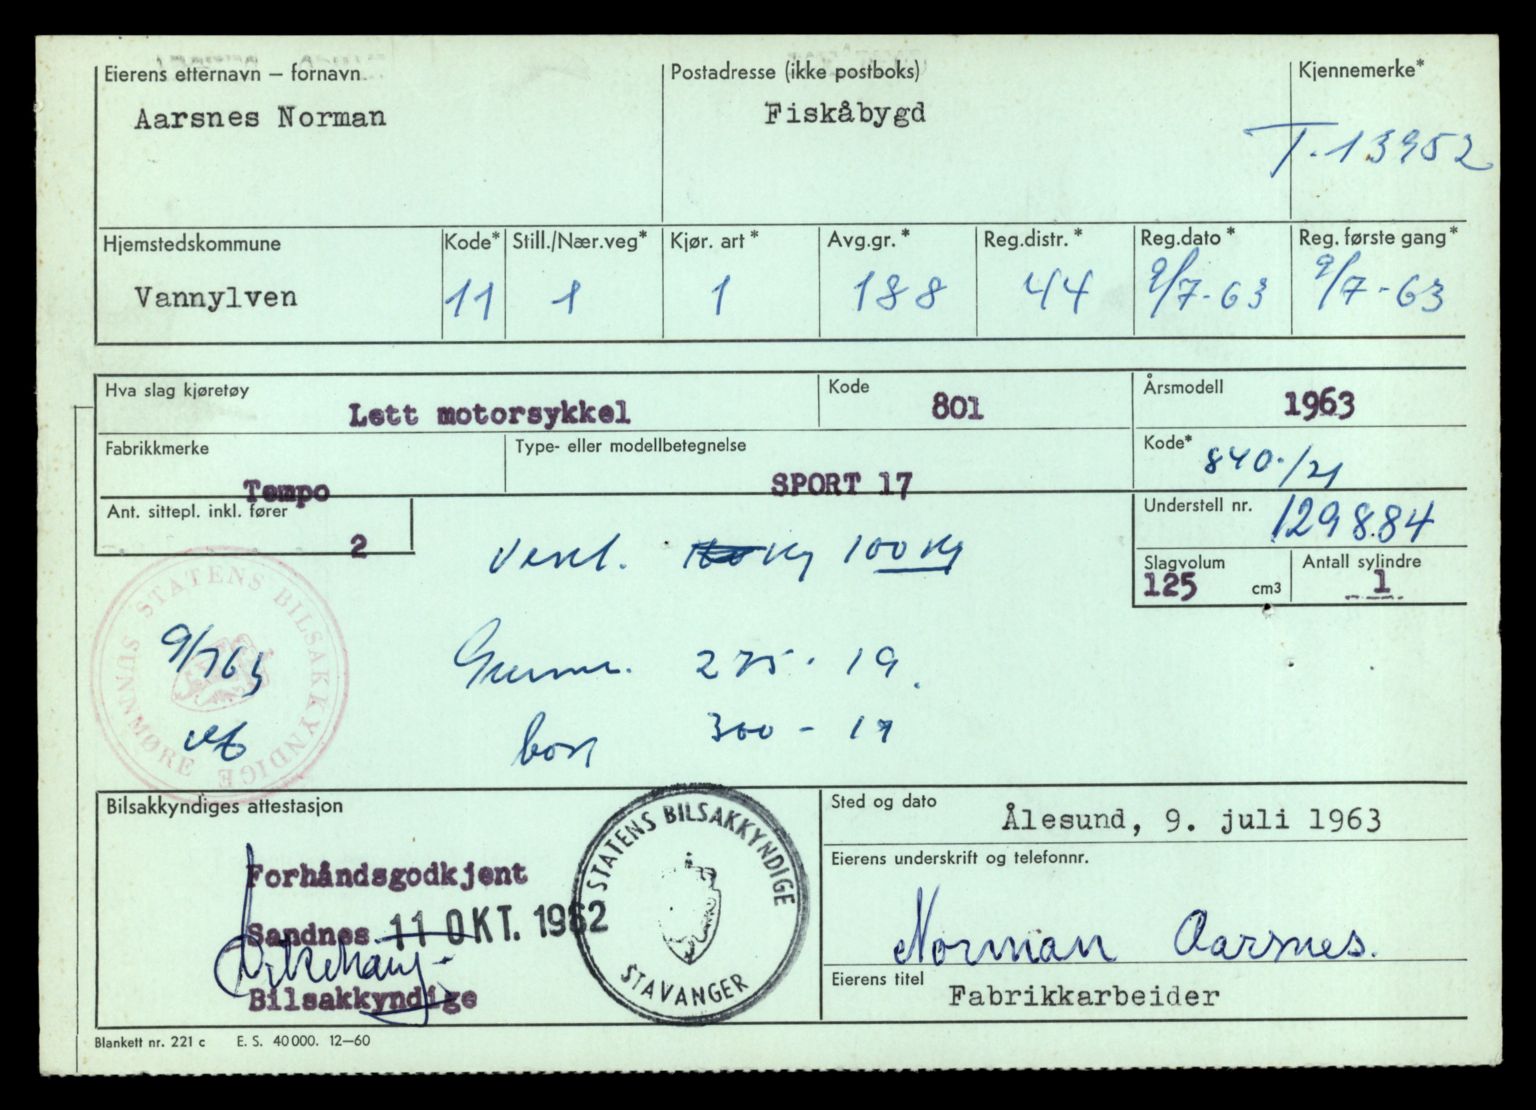 Eierens etternavn – fornavn Postadresse (ikke postboks) Kjennemerke*
Aarsnes Norman Fiskåbygd T.13952
Hjemstedskommune Kode* Still./Nær.veg* Kjør. art* Avg.gr.* Reg.distr.* Reg.dato* Reg. første gang*
Vannylven 11 1 1 188 44 9/7-63 9/7-63
Hva slag kjøretøy Kode Årsmodell
Lett motorsykkel 801 1963
Fabrikkmerke Type- eller modellbetegnelse Kode*
Tempo SPORT 17 840./21
Ant. sittepl. inkl. fører Understell nr.
2 129884
Vekt. kg 100 kg
Slagvolum Antall sylindre
125 cm3 1
STATENS BILSAKKYNDIGE SUNNMØRE
9/763
Gummi. 275 - 19.
bak 300 - 17
Bilsakkyndiges attestasjon Sted og dato
Ålesund, 9. juli 1963
Eierens underskrift og telefonnr.
Forhåndsgodkjent
Sandnes 11 OKT. 1962
Bilsakkyndige
STATENS BILSAKKYNDIGE STAVANGER
Norman Aarsnes.
Eierens titel
Fabrikkarbeider
Blankett nr. 221 c E. S. 40 000. 12–60